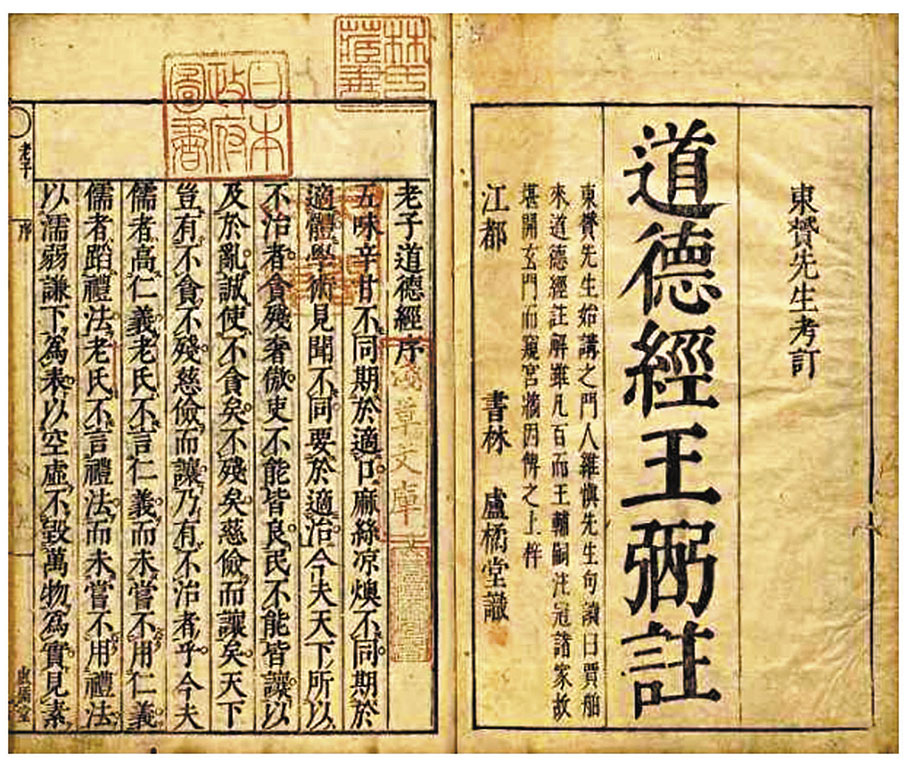 東贇先生考訂
道德經王弼註
東贇先生始講之門人維慎先生句讀曰賈舶
來道德經註解雖凡百而王輔嗣注冠諸家故
堪開玄門而窺宮牆因俾之上梓
江都 書林 盧橘堂識
林氏藏書
日本政府圖書
淺草文庫
老子道德經序
五味辛甘不同期於適口麻絲凉燠不同期於
適體學術見聞不同要於適治今夫天下所以
不治者貪殘奢傲吏不能皆良民不能皆讓以
及於亂誠使不貪矣不殘矣慈儉而讓矣天下
豈有不貪不殘慈儉而讓乃有不治者乎今夫
儒者高仁義老氏不言仁義而未嘗不用仁義
儒者蹈禮法老氏不言禮法而未嘗不用禮法
以濡弱謙下為表以空虛不毀萬物為實見素
老子
序
盧橘堂